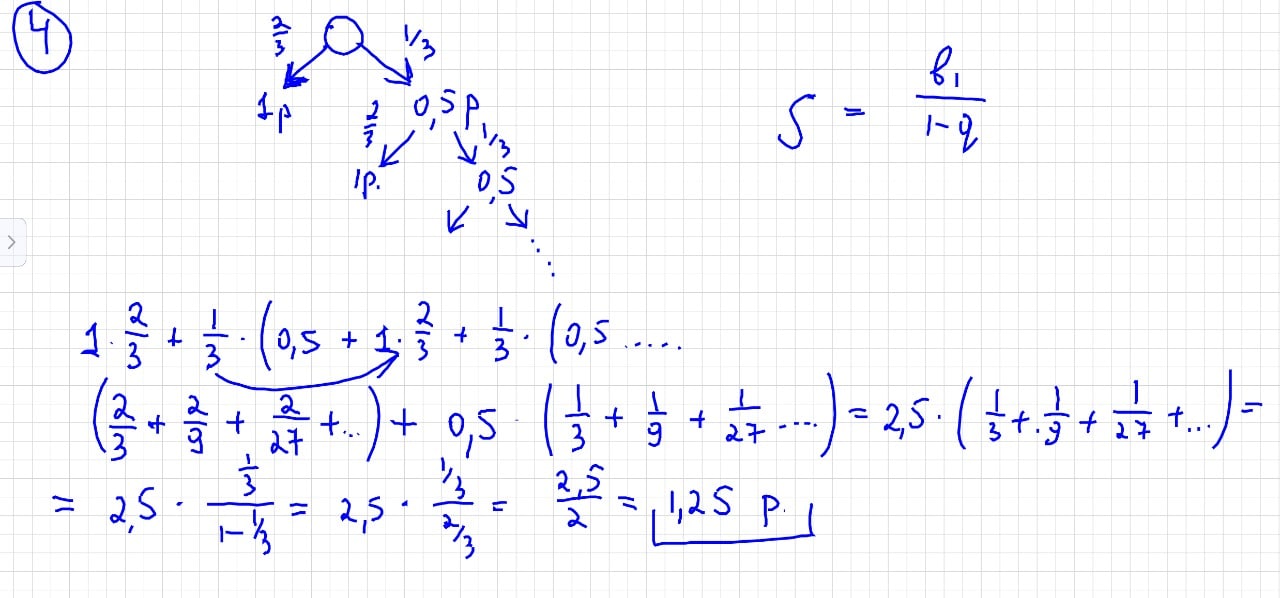 4
2/3 1/3
1р 0,5р
2/3 1/3
1р. 0,5
S = b₁/(1-q)
1·2/3 + 1/3·(0,5 + 1·2/3 + 1/3·(0,5.....
(2/3 + 2/9 + 2/27 +...) + 0,5·(1/3 + 1/9 + 1/27....) = 2,5·(1/3 + 1/9 + 1/27 +...) =
= 2,5·(1/3)/(1-1/3) = 2,5·(1/3)/(2/3) = 2,5/2 = 1,25 р.